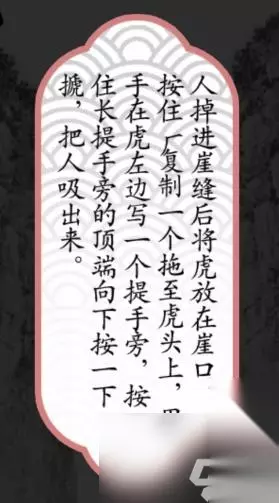 人掉进崖缝后将虎放在崖口
按住厂复制一个拖至虎头上，
手在虎左边写一个提手旁，按
住长提手旁的顶端向下按一下
搋，把人吸出来。